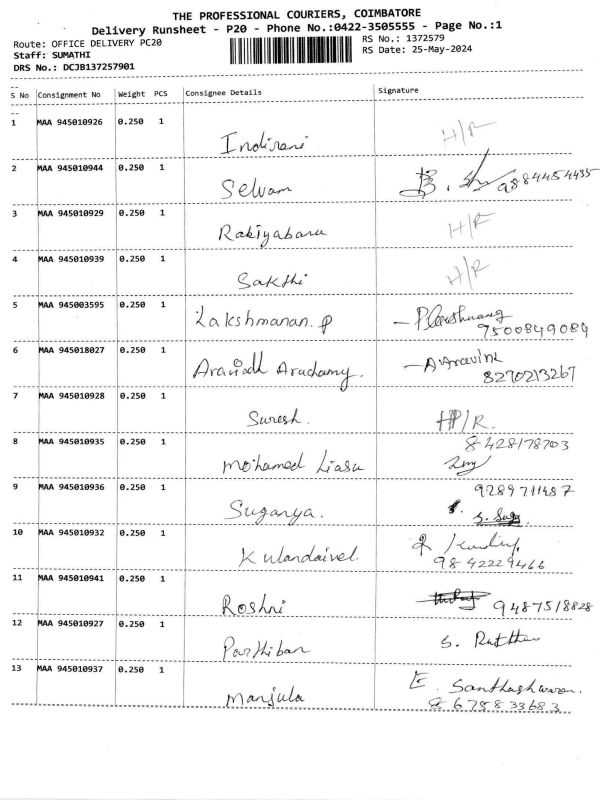 THE PROFESSIONAL COURIERS, COIMBATORE
Delivery Runsheet - P20 - Phone No.:0422-3505555 - Page No.:1
Route: OFFICE DELIVERY PC20
RS No.: 1372579
Staff: SUMATHI
RS Date: 25-May-2024
DRS No.: DCJB137257901
S No Consignment No Weight PCS Consignee Details Signature
1 MAA 945010926 0.250 1 Indirani H/R
2 MAA 945010944 0.250 1 Selvam B. 9884454435
3 MAA 945010929 0.250 1 Rakiyabanu H/R
4 MAA 945010939 0.250 1 Sakthi H/R
5 MAA 945003595 0.250 1 Lakshmanan. P
7500849089
6 MAA 945018027 0.250 1 Aravindh Arachamy. - A Aravind
8270213267
7 MAA 945010928 0.250 1 Suresh. H/R.
8 MAA 945010935 0.250 1 Mohamed Liasu 8428178703
9 MAA 945010936 0.250 1 Suganya. 9289711487
S. Suga
10 MAA 945010932 0.250 1 Kulandaivel
9842229466
11 MAA 945010941 0.250 1 Roshni 9487518828
12 MAA 945010927 0.250 1 Parthiban S.
13 MAA 945010937 0.250 1 Manjula E. Santhoshwaran.
8678833683